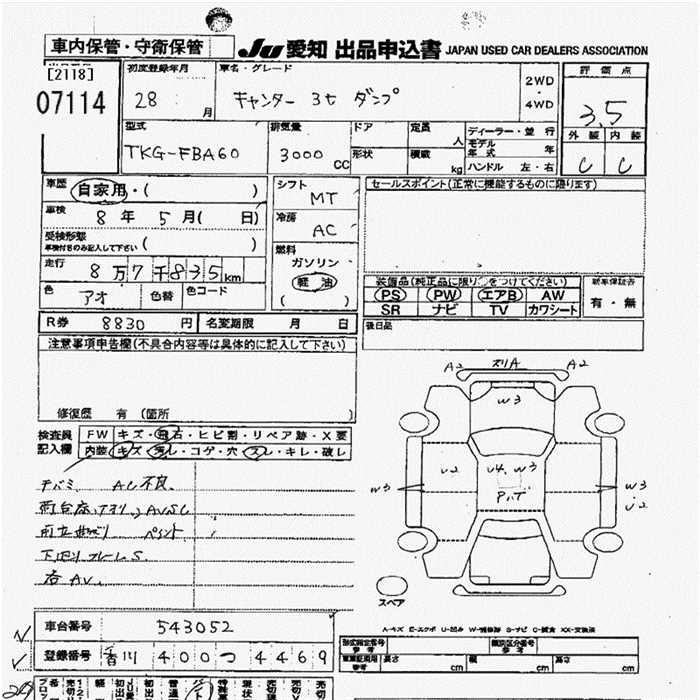 車内保管・守衛保管
JU 愛知 出品申込書 JAPAN USED CAR DEALERS ASSOCIATION
[2118]
07114
初度登録年月
28 月
車名・グレード
キャンター 3t ダンプ
2WD
・
4WD
評価点
3.5
外装 内装
C C
型式
TKG-FBA60
排気量
3000 CC
ドア
形状
定員 人
積載 kg
ディーラー・並行
モデル年式 年
ハンドル 左・右
車歴 自家用・( )
車検 8年 5月( 日)
受検形態
車検付きのみ記入して下さい ( )
走行 8万7千835km
色 アオ 色替 色コード
シフト MT
冷房 AC
燃料
ガソリン
軽油
( )
セールスポイント(正常に機能するものに限ります)
装備品(純正品に限り○をつけてください)
PS PW エアB AW
SR ナビ TV カワシート
新車保証書
有・無
後日品
R券 8830円 名変期限 月 日
注意事項申告欄(不具合内容等は具体的に記入して下さい)
修復歴 有 (箇所 )
検査員記入欄
FW キズ・飛石・ヒビ割・リペア跡・X要
内装 キズ・汚レ・コゲ・穴・スレ・キレ・破レ
チバミ AC不良
AVSC
ペイント
下廻りフレームS.
右AV.
A2 スリA A2
W3
U2
U4, W3
W3
W3
U2
スペア
A-キズ E-エクボ U-凹み W-補修跡 S-サビ C-腐食 XX-交換済
車台番号 543052
登録番号 香川 400つ4469
形式指定番号
類別区分番号
長さ cm 幅 cm 高さ cm